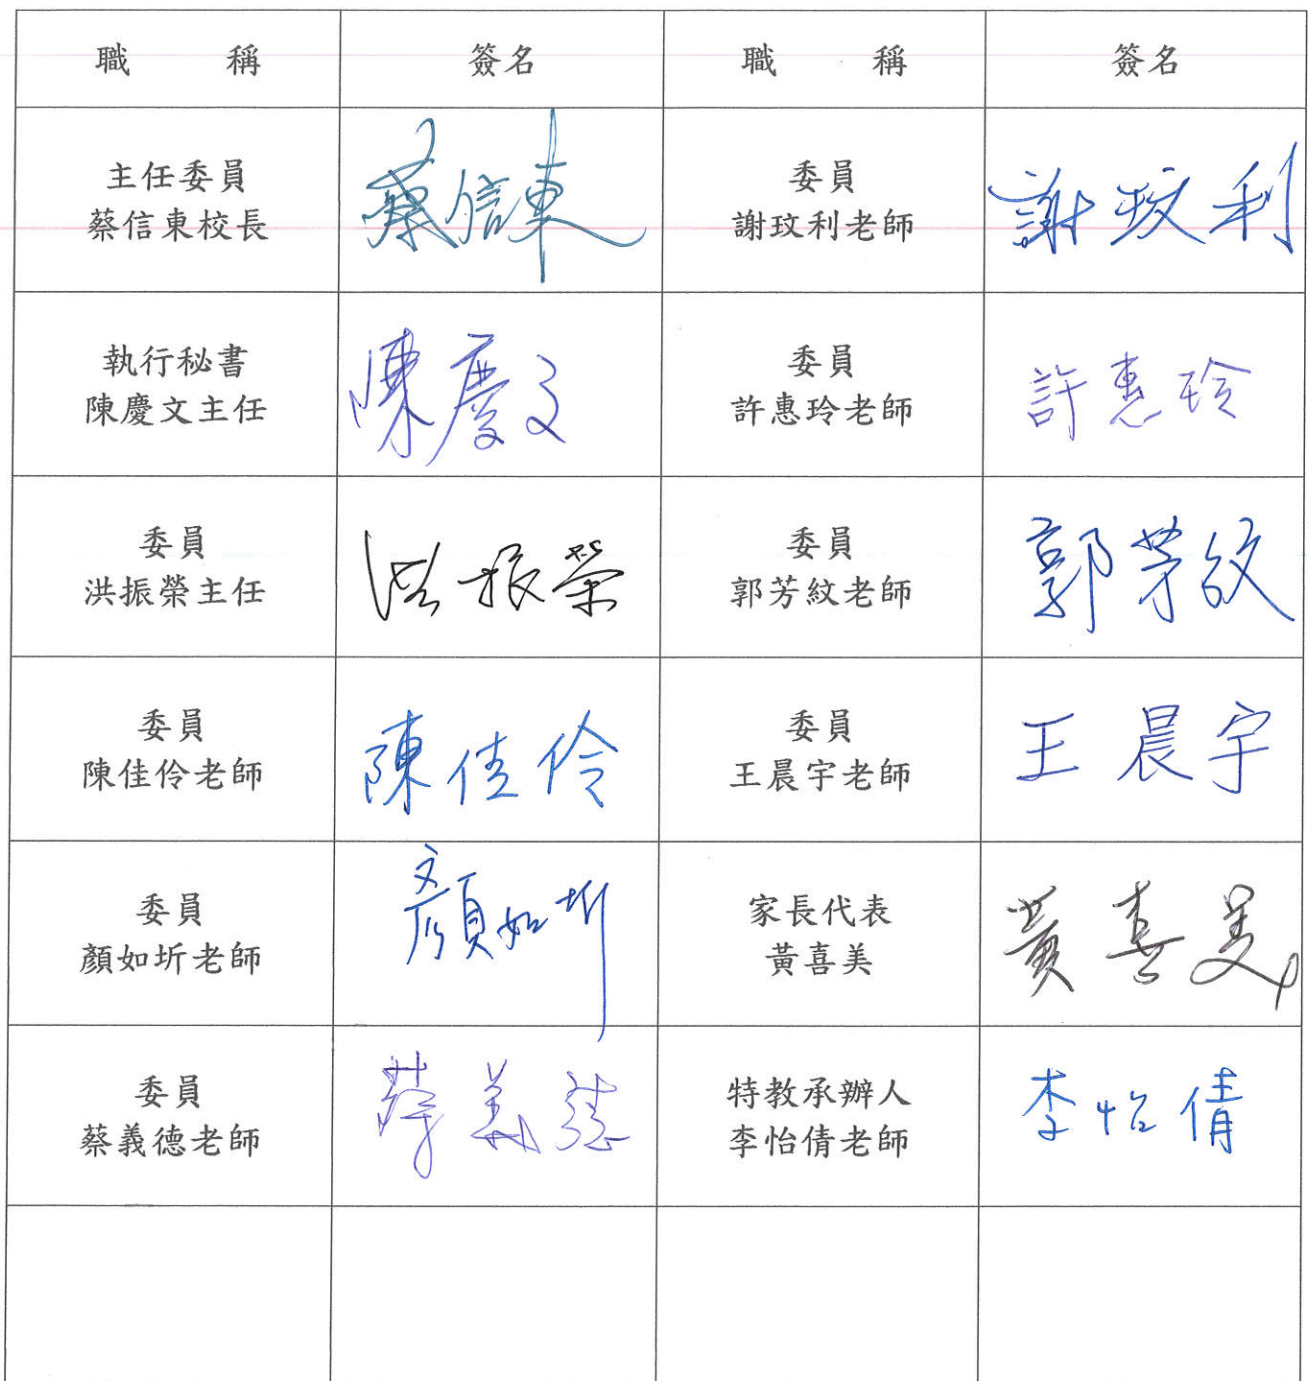 職 稱 簽名 職 稱 簽名
主任委員
蔡信東校長
蔡信東
委員
謝玟利老師
謝玟利
執行秘書
陳慶文主任
陳慶文
委員
許惠玲老師
許惠玲
委員
洪振榮主任
洪振榮
委員
郭芳紋老師
郭芳紋
委員
陳佳伶老師
陳佳伶
委員
王晨宇老師
王晨宇
委員
顏如圻老師
顏如圻
家長代表
黃喜美
黃喜美
委員
蔡義德老師
蔡義德
特教承辦人
李怡倩老師
李怡倩